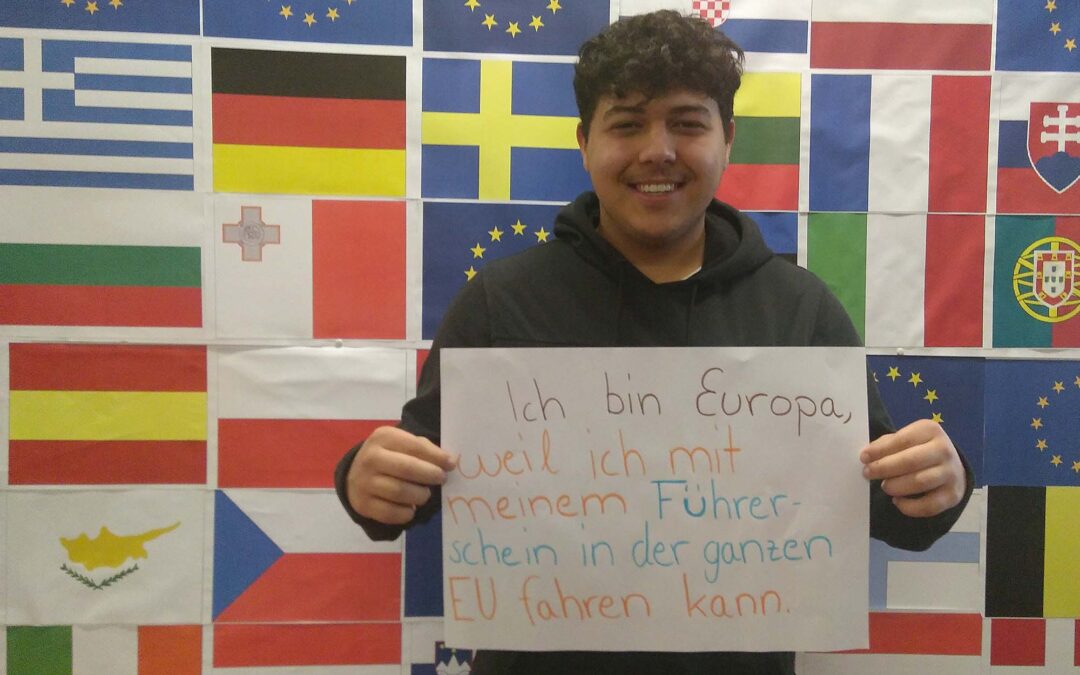 Ich bin Europa,
weil ich mit
meinem Führer-
schein in der ganzen
EU fahren kann.